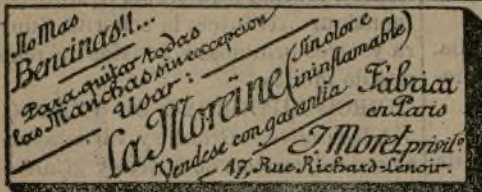 No Mas
Bencinas!!...
Para quitar todas
las Manchas sin excepcion
Usar:
La Moreïne (sin olor e
ininflamable)
Vendese con garantia
Fábrica
en Paris
J. Moret, privilº
17, Rue Richard-Lenoir.